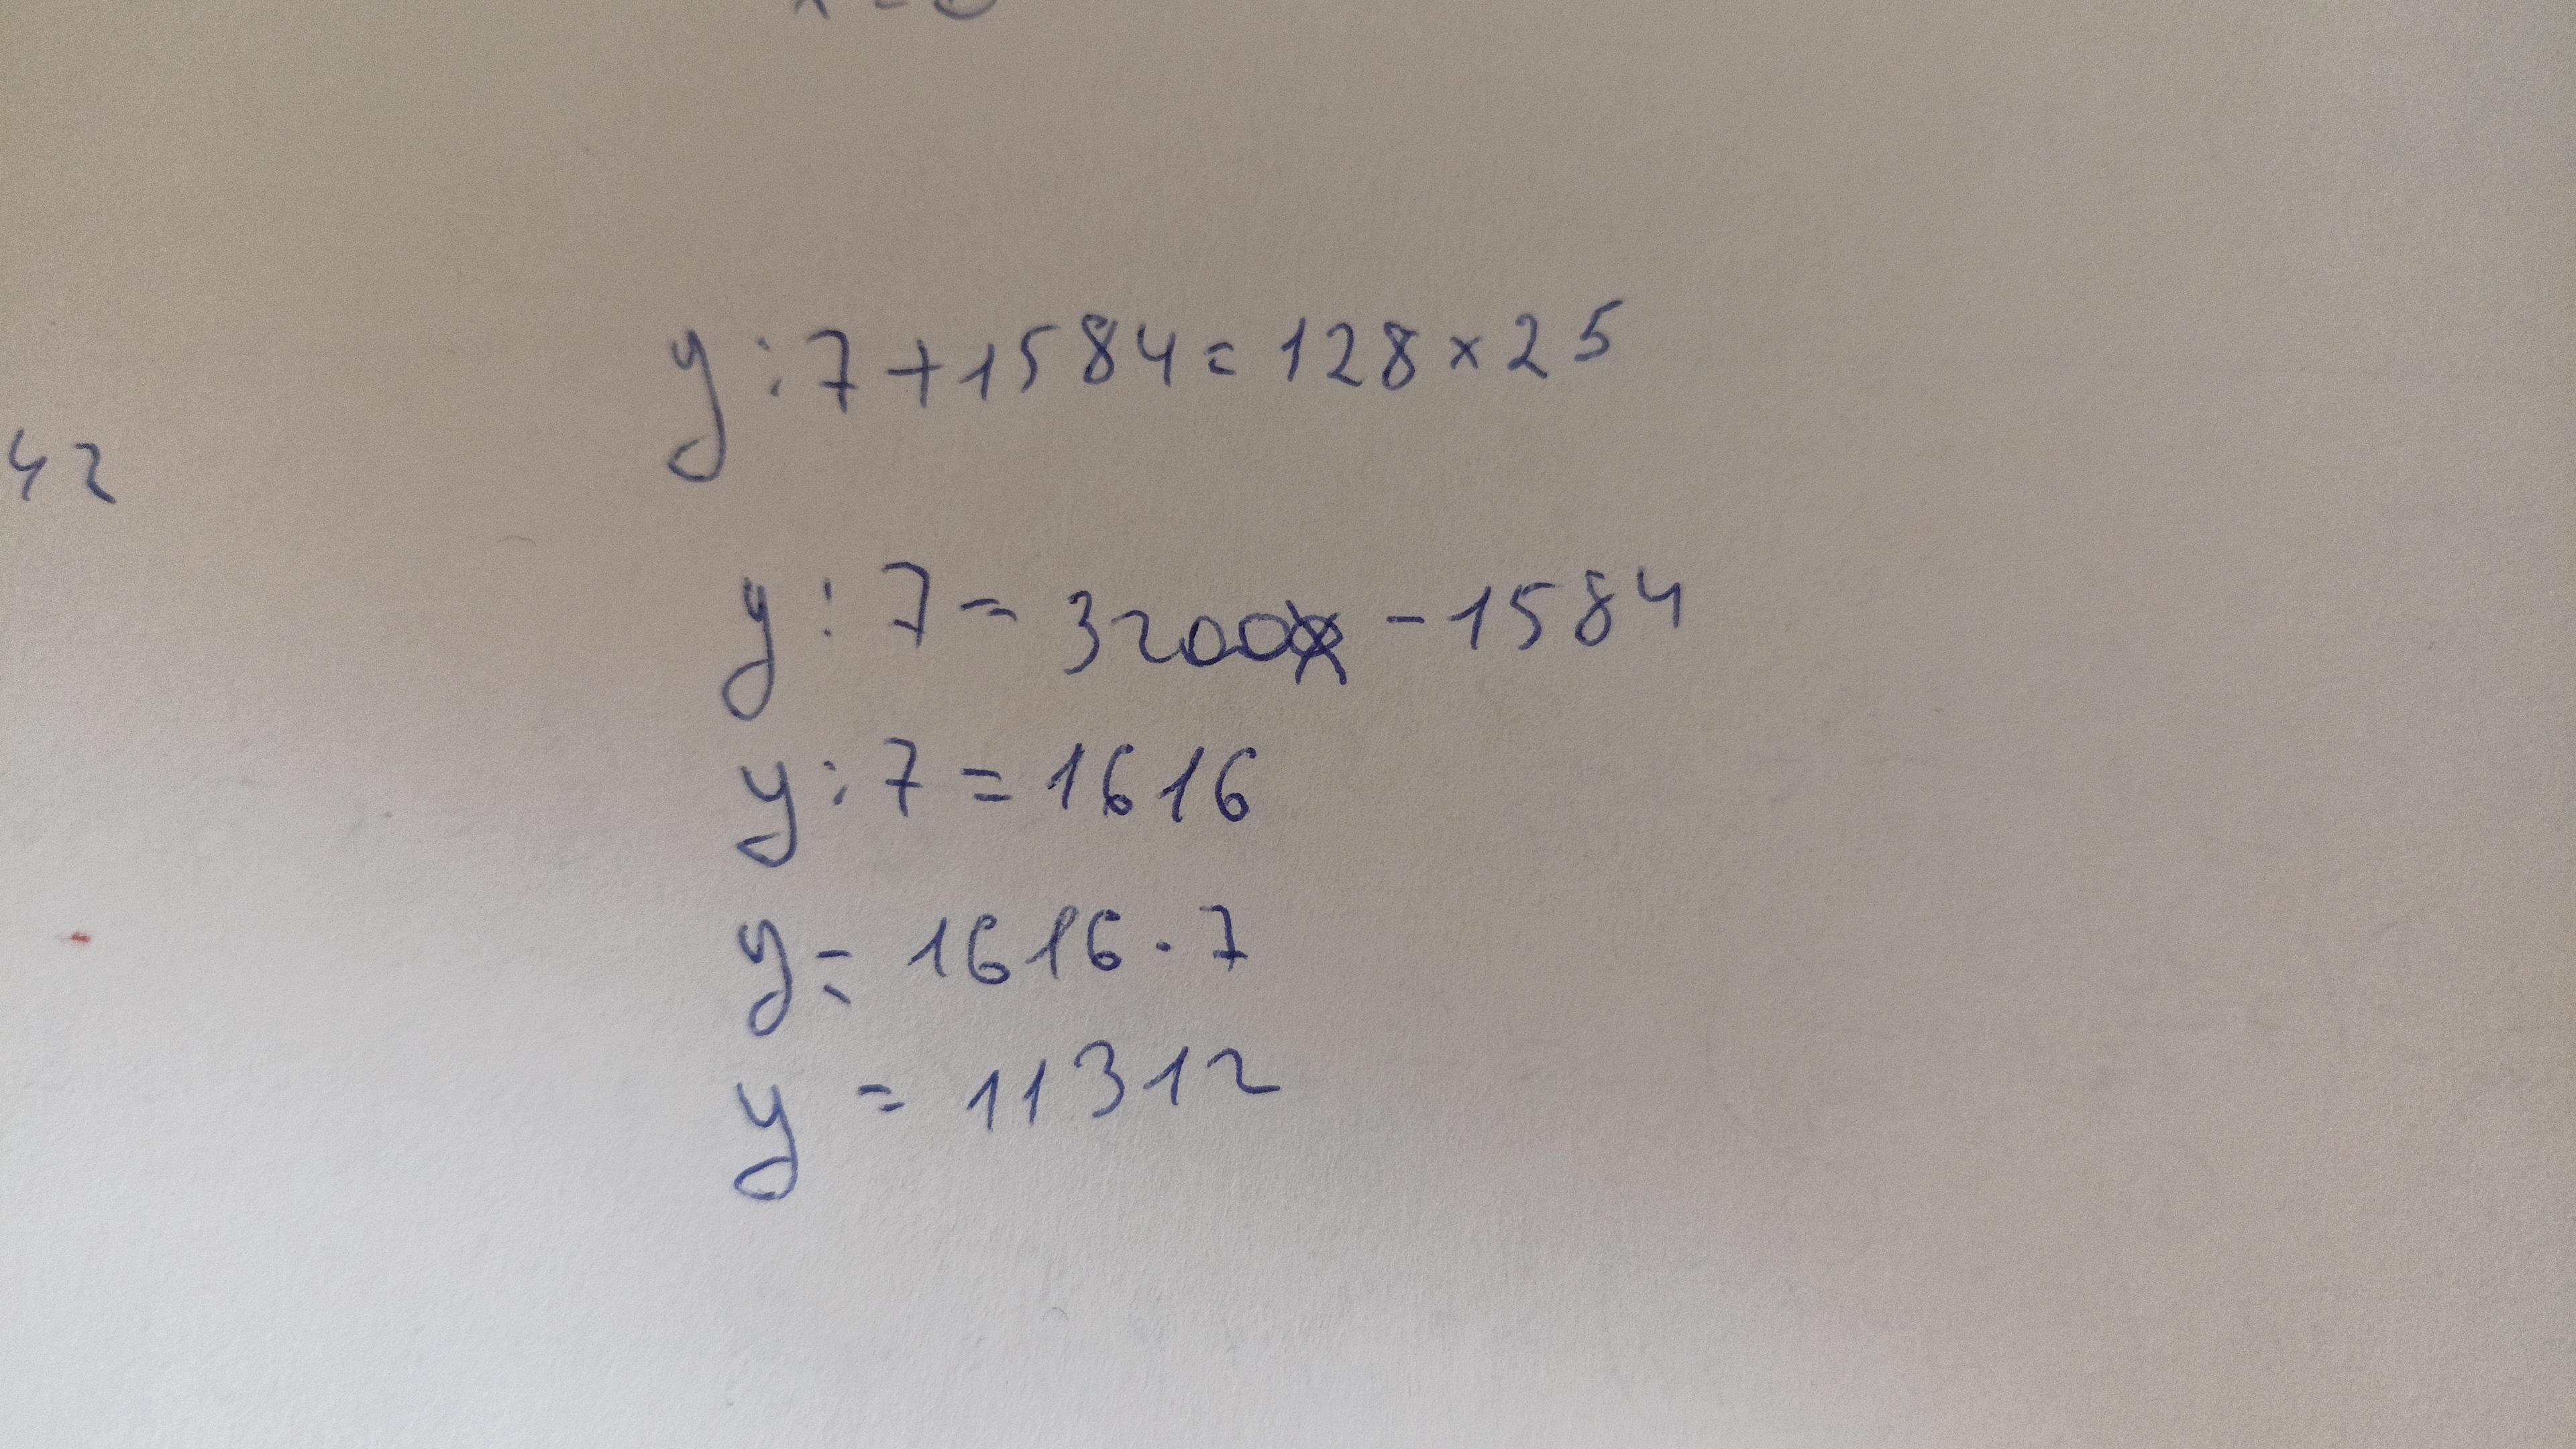 y : 7 + 1584 = 128 × 25
42
y : 7 = 3200 - 1584
y : 7 = 1616
y = 1616 · 7
y = 11312